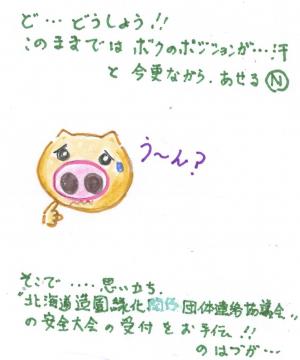 ど…どうしよう!!
このままではボクのポジションが…汗
と今更ながら、あせるⓃ
う～ん?
そこで‥‥思い立ち、
"北海道造園緑化関係団体連絡協議会"
の安全大会の受付をお手伝い!!
のはづが…